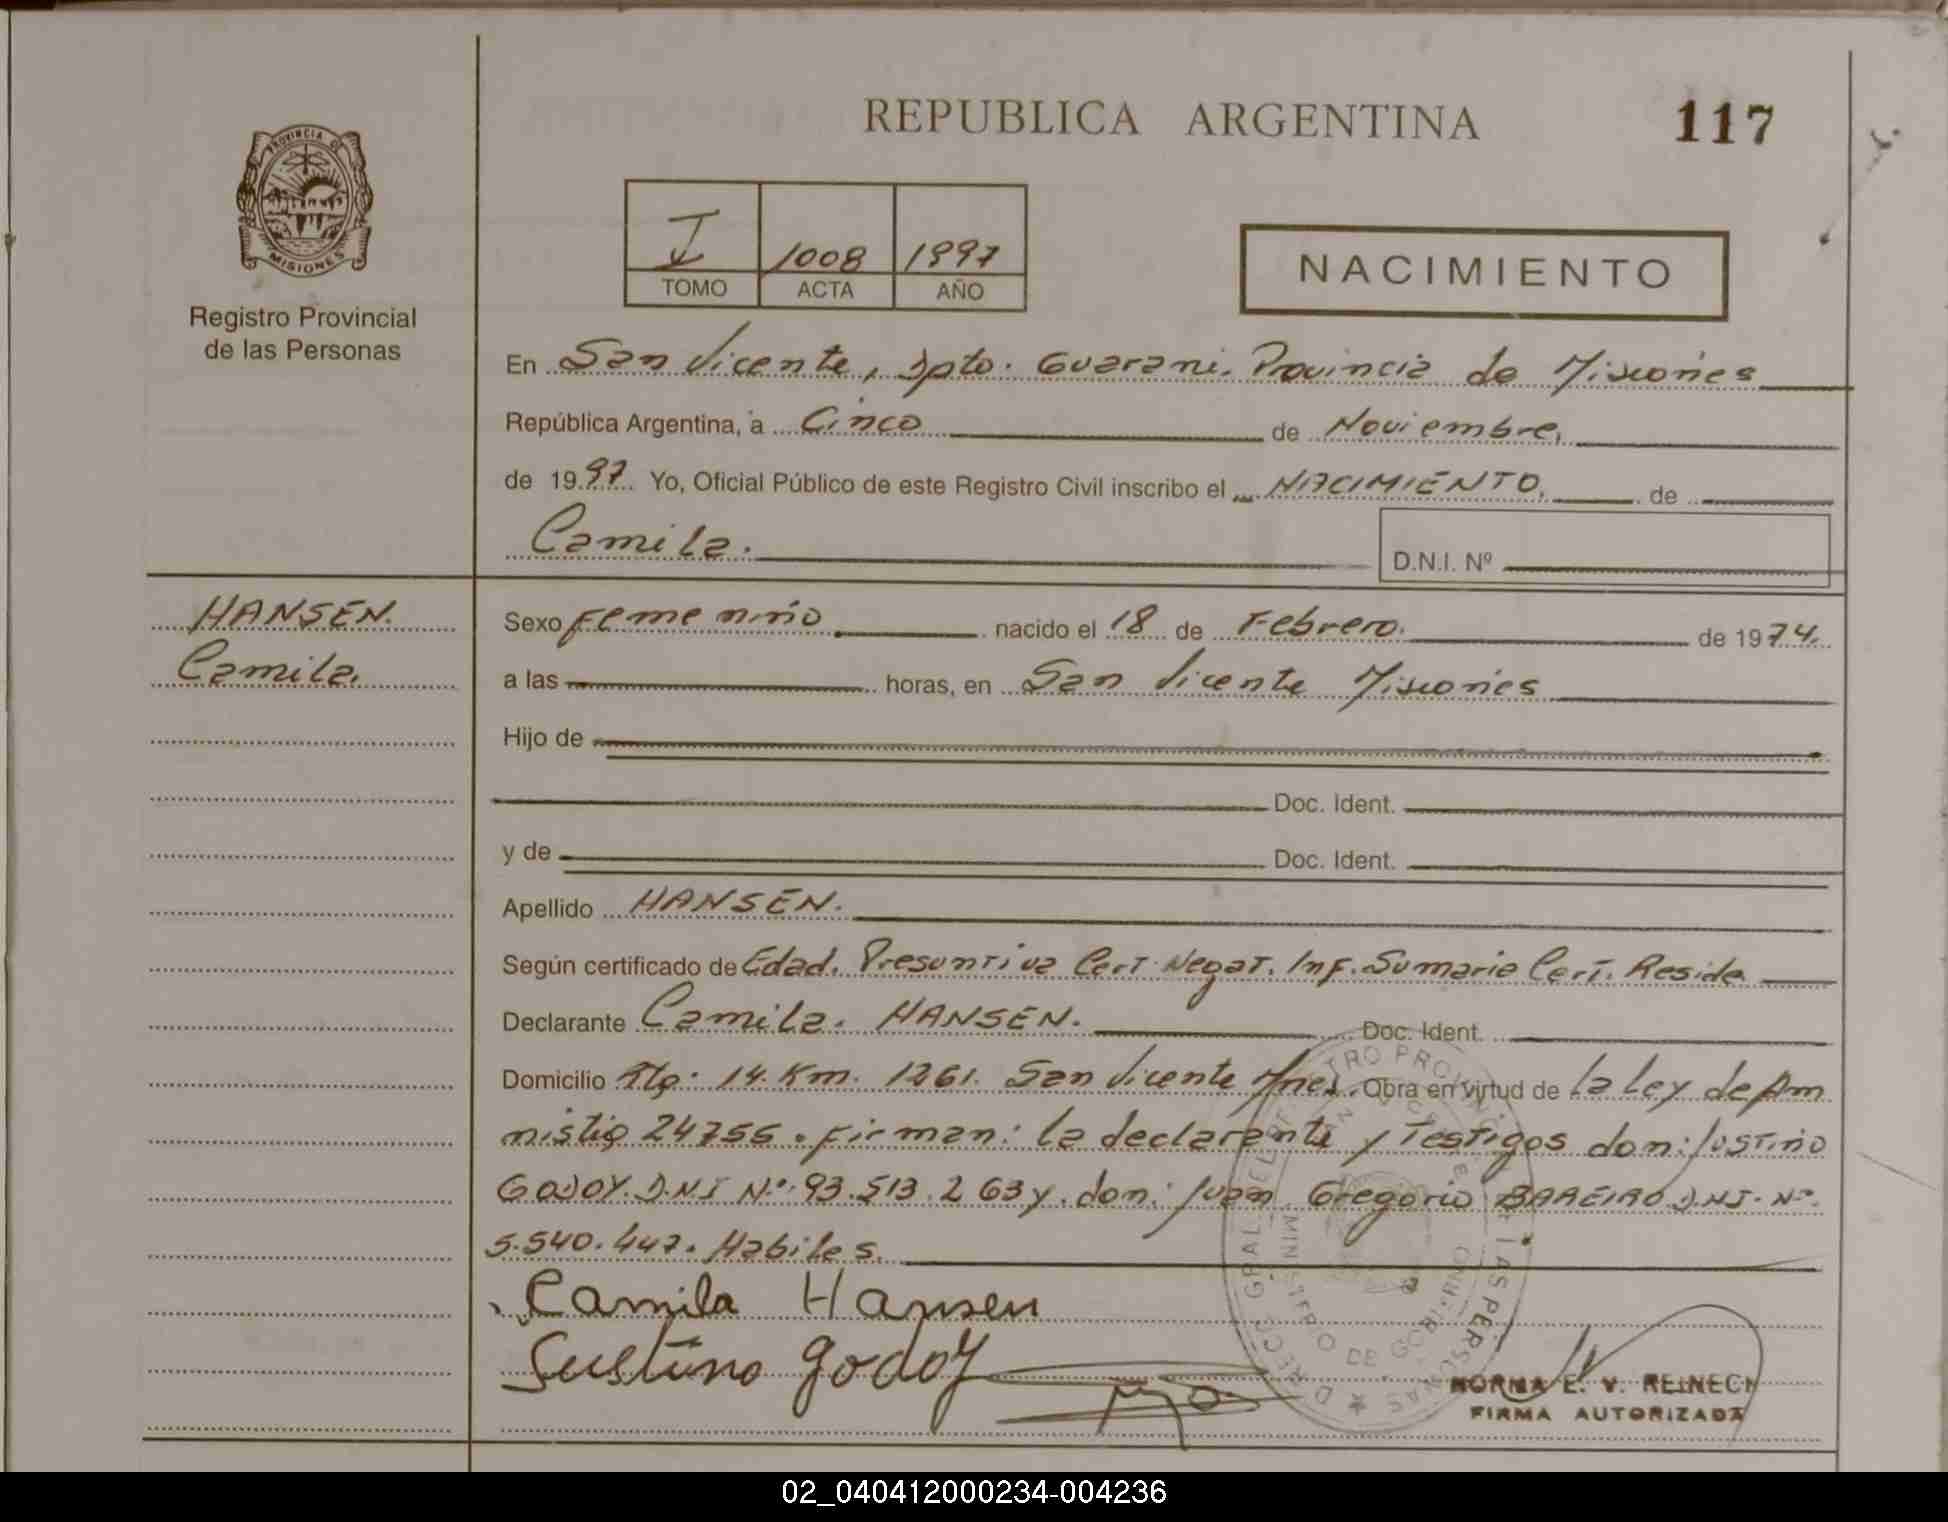 REPUBLICA ARGENTINA
117
PROVINCIA DE
MISIONES
Registro Provincial
de las Personas
I 1008 1997
TOMO ACTA AÑO
NACIMIENTO
En San Vicente, Dpto. Guarani. Provincia de Misiones
República Argentina, a Cinco de Noviembre,
de 1997. Yo, Oficial Público de este Registro Civil inscribo el NACIMIENTO, de
Camila.
D.N.I. Nº
HANSEN.
Camila.
Sexo Femenino nacido el 18 de Febrero. de 1974.
a las horas, en San Vicente Misiones
Hijo de
Doc. Ident.
y de Doc. Ident.
Apellido HANSEN.
Según certificado de Edad. Presuntiva Cert. Negat. Inf. Sumaria Cert. Reside.
Declarante Camila. HANSEN. Doc. Ident.
Domicilio 14. Km. 1261. San Vicente Mnes. Obra en virtud de la Ley de Am
nistia 24755. Firman: la declarante y Testigos don: Justino
GODOY. D.N.I Nº. 93.513.263 y. don: Juan Gregorio BAREIRO D.NI. Nº.
5.540.447. Habiles.
Camila Hansen
Justino Godoy
NORMA E. V. REINECK
FIRMA AUTORIZADA
02_040412000234-004236